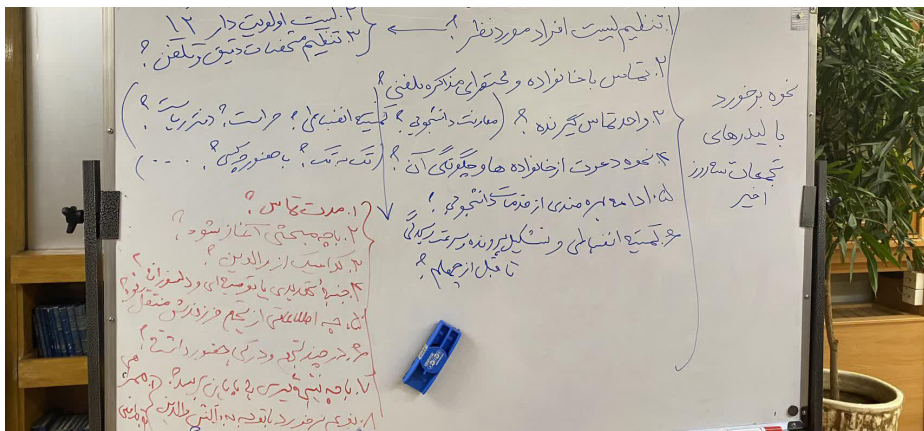 نحوه برخورد
با لیدرهای
تجمعات سه روز
اخیر
۱. تنظیم لیست افراد مورد نظر؟
۲. لیست اولویت دار ۱۲
۳. تنظیم مشخصات دقیق و تلفن؟
۲. تماس با خانواده و محتوای مذاکره تلفنی؟
۳. واحد تماس گیرنده؟ (معاونت دانشجویی؟ کمیته انضباطی؟ حراست؟ دفتر ریاست؟)
۴. نحوه دعوت از خانواده ها و چگونگی آن؟ (تک به تک؟ با حضور چه کسی؟ ....)
۵. ادامه بهره مندی از خدمات دانشجویی؟
۶. کمیته انضباطی و تشکیل پرونده و سرعت رسیدگی
تا قبل از چهلم؟
۱. مدت تماس؟
۲. با چه مبحثی آغاز شود؟
۳. کدامیک از والدین؟
۴. جنبه تهدیدی یا توصیه ای و دلسوزانه
۵. چه اطلاعاتی از تجمع فرزندش منتقل
۶. در چند تجمع و درگیری حضور داشت؟
۷. با چه نتیجه گیری به پایان برسد؟
۸. نوع برخورد با توجه به واکنش والدین